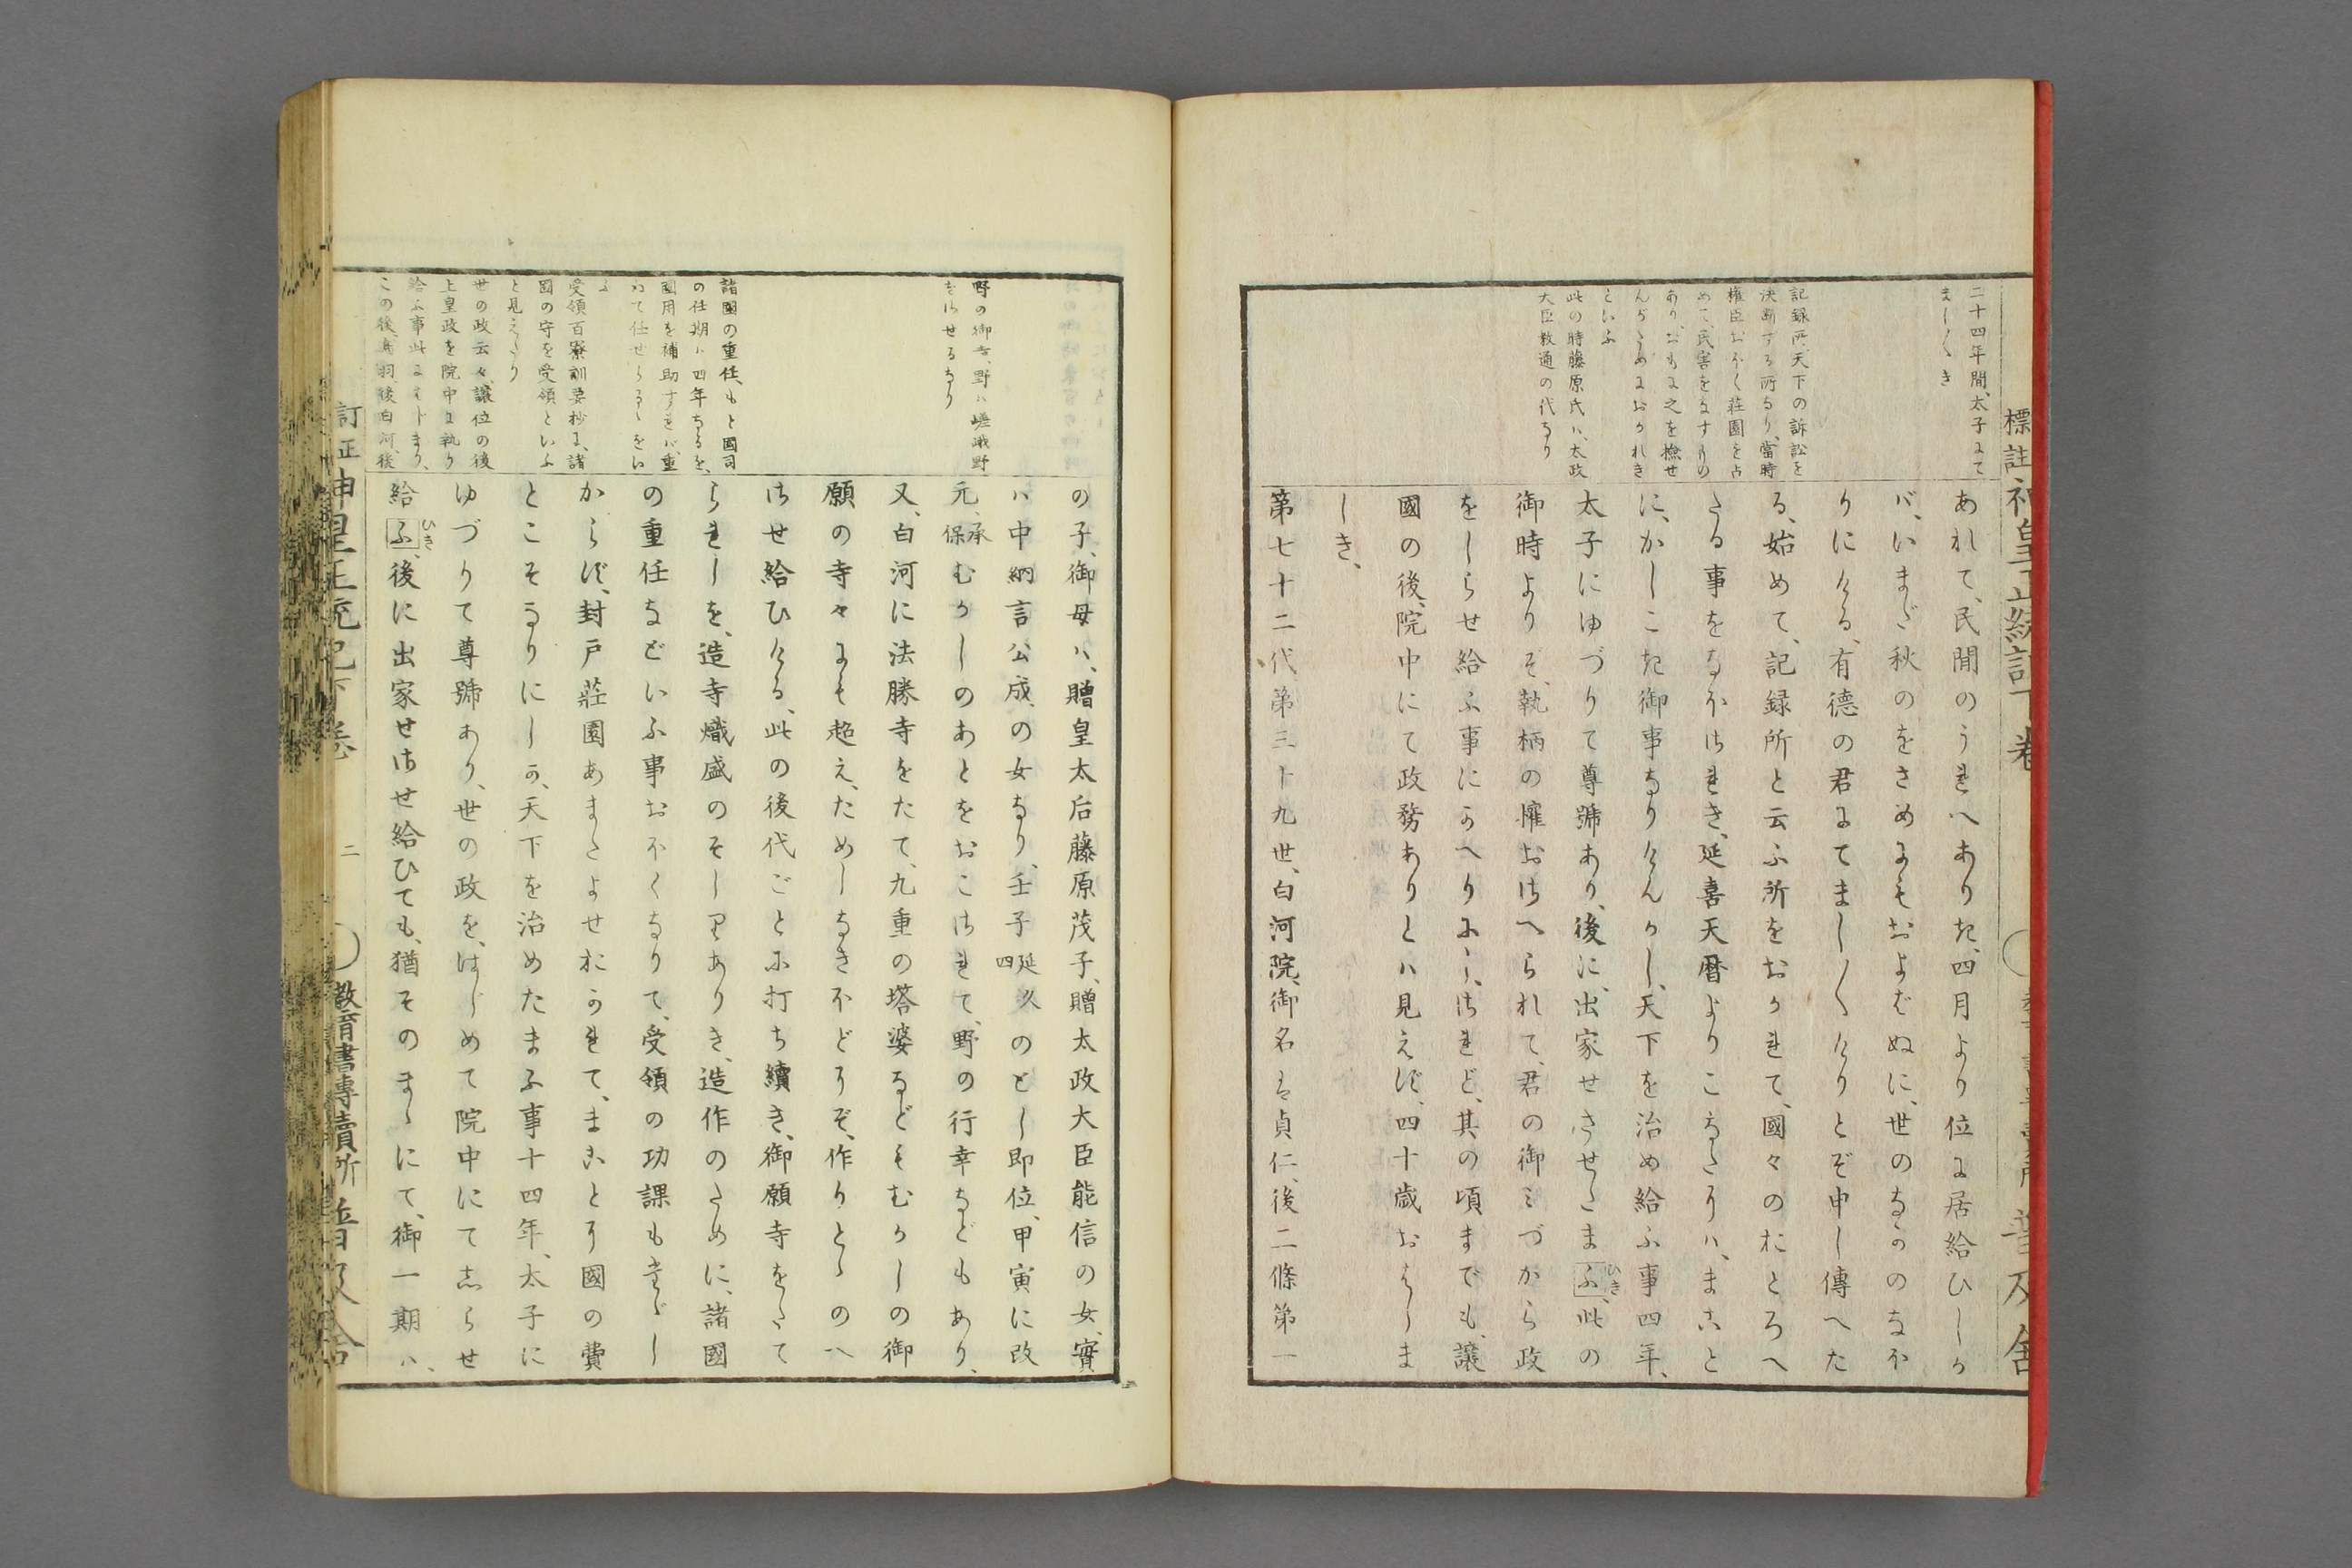 二十四年間、太子にて
まし〱き
記録所、天下の訴訟を
決斷する所なり、當時
權臣おほく荘園を占
めて、民害をなすもの
あり、おもに之を撿せ
んがためにおかれき
といふ
此の時藤原氏ハ、太政
大臣教通の代なり
あれて、民間のうれへありき、四月より位に居給ひしか
バ、いまだ秋のをさめにもおよばぬに、世のなかのなほ
りにける、有德の君にてまし〱けりとぞ申し傳へた
る、始めて、記録所と云ふ所をおかれて、國々のおとろへ
たる事をなほされき、延喜天暦よりこなたハ、まこと
に、かしこき御事なりけんかし、天下を治め給ふ事四年、
太子にゆづりて尊號あり、後に、出家せさせたまふ、ひき此の
御時よりぞ、執柄の權おさへられて、君の御みづから政
をしらせ給ふ事にかへりにし、されど、其の頃までも、讓
國の後、院中にて政務ありとハ見えず、四十歳おはしま
しき、
第七十二代第三十九世、白河院、御名は貞仁、後二條第一
野の御幸、野ハ嵯峨野
をいはせるなり
諸國の重任、もと國司
の任期ハ四年なるを、
國用を補助すれバ、重
ねて任せらるゝをい
ふ
受領百寮訓要抄に、諸
國の守を受領といふ
と見えたり
世の政云々、讓位の後
上皇政を院中に執り
給ふ事此にはじまり、
この後、鳥羽、後白河、後
の子、御母ハ、贈皇太后藤原茂子、贈太政大臣能信の女、實
ハ中納言公成の女なり、壬子延久四のとし即位、甲寅に改
元、承保むかしのあとをおこされて、野の行幸などもあり、
又、白河に法勝寺をたて、九重の塔婆などもむかしの御
願の寺々にも超え、ためしなきほどにぞ、作りとゝのへ
させ給ひける、此の後代ごとに打ち續き、御願寺をたて
られしを、造寺熾盛のそしりありき、造作のために、諸國
の重任などいふ事おほくなりて、受領の功課もたゞし
からず、封戸荘園あまたよせおかれて、まことに國の費
とこそなりにしか、天下を治めたまふ事十四年、太子に
ゆづりて尊號あり、世の政を、はじめて院中にて志らせ
給ふ、ひき後に出家せさせ給ひても、猶そのまゝにて、御一期ハ、